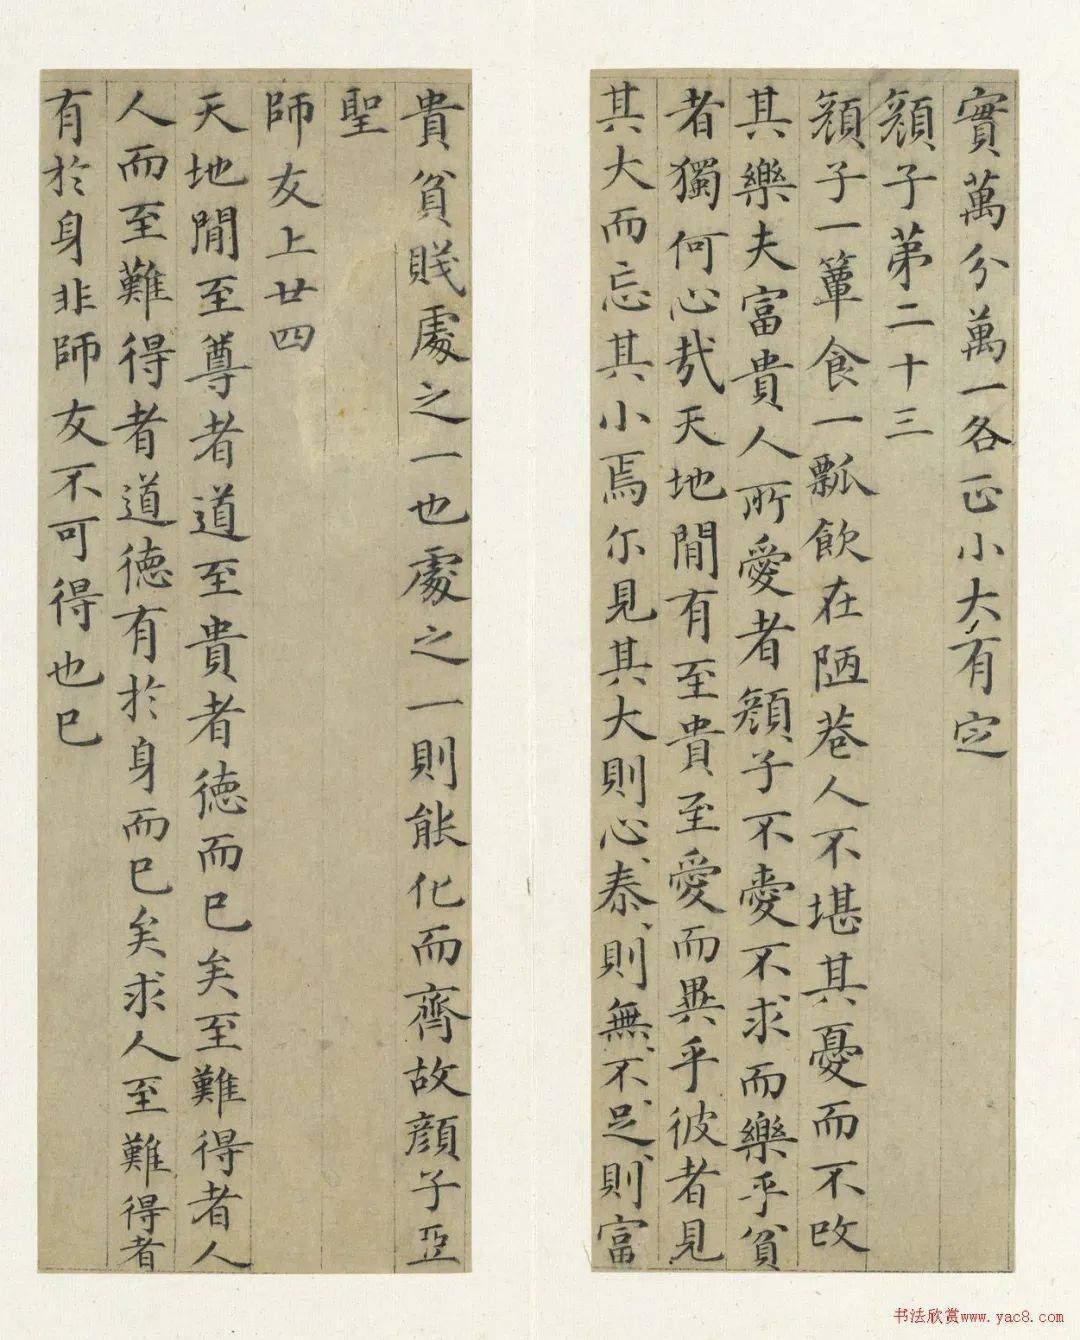 實萬分萬一各正小大有定
顏子第二十三
顏子一簞食一瓢飲在陋巷人不堪其憂而不改
其樂夫富貴人所愛者顏子不愛不求而樂乎貧
者獨何心哉天地閒有至貴至愛而異乎彼者見
其大而忘其小焉尓見其大則心、泰、則無、不、足、則富
貴貧賤處之一也處之一則能化而齊故顏子亞
聖
師友上廿四
天地閒至尊者道至貴者德而已矣至難得者人
人而至難得者道德有於身而已矣求人至難得者
有於身非師友不可得也已
书法欣赏www.yac8.com